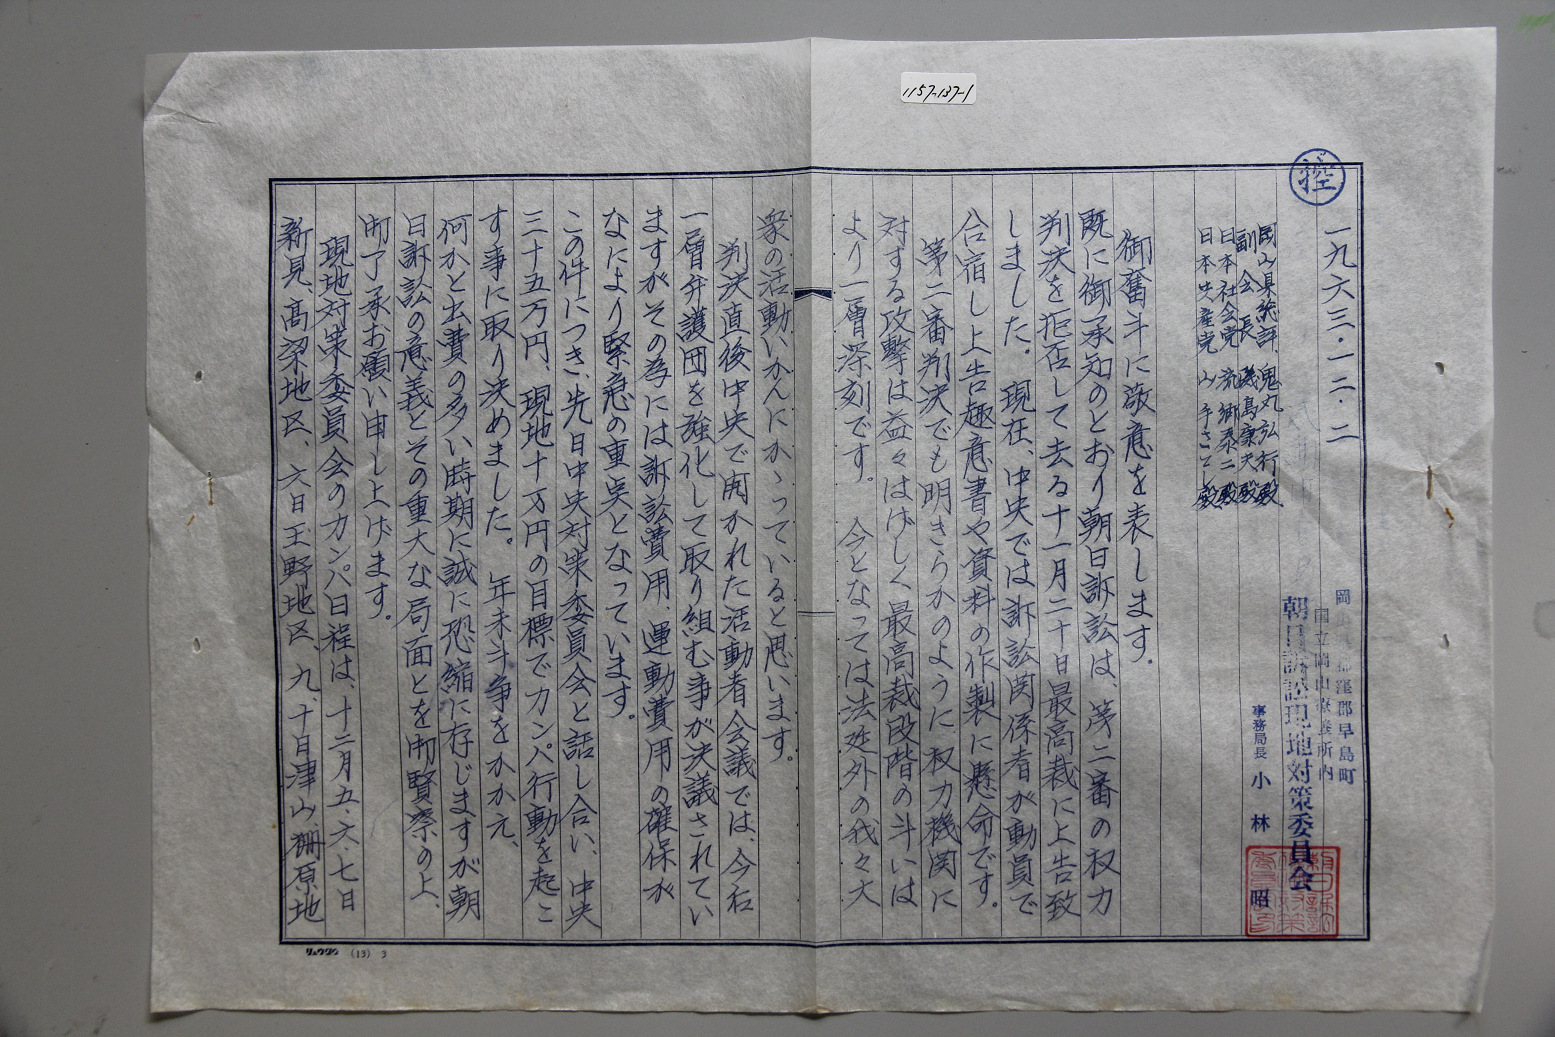 1157-137-1
控
一九六三・一二・二
岡山県総評 鬼丸弘行殿
副会長 磯島豪夫殿
日本社会党 殿
日本共産党 殿
岡 窪郡早島町
国立岡山療養所内
朝日訴訟現地対策委員会
事務局長 小林 昭
御奮斗に敬意を表します。
既に御承知のとおり朝日訴訟は、第二審の权力
判決を拒否して去る十一月二十日最高裁に上告致
しました。現在、中央では訴訟関係者が動員で
合宿し上告趣意書や資料の作製に懸命です。
第二審判決でも明きらかのように权力機関に
対する攻撃は益々はげしく最高裁段階の斗いは
より一層深刻です。今となっては法廷外の我々大
衆の活動いかんにかゝっていると思います。
判決直後中央で開かれた活動者会議では、今
一層弁護団を強化して取り組む事が决議されてい
ますがその為には訴訟費用、運動費用の確保が
なにより緊急の重点となっています。
この件につき先日中央対策委員会と話し合い、中央
三十五万円、現地十万円の目標でカンパ行動を起こ
す事に取り決めました。年末斗争をかかえ、
何かと出費の多い時期に誠に恐縮に存じますが朝
日訴訟の意義とその重大な局面とを御賢察の上、
御了承お願い申し上げます。
現地対策委員会のカンパ日程は、十二月五、六、七日
新見、高梁地区、六日玉野地区、九、十日津山柵原地
リュウグウ (13) 3